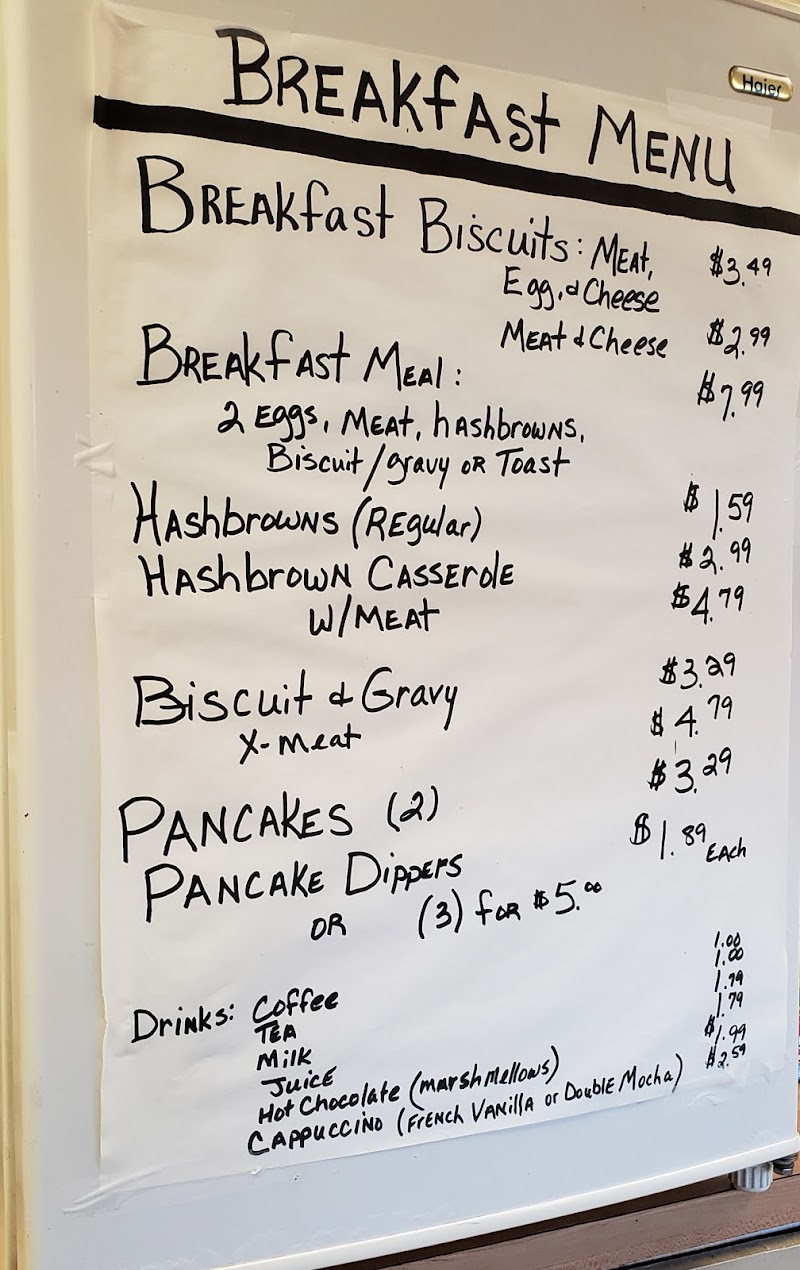 Haier
BREAKfAst MENU
BREAKfast Biscuits: MEAt, $3.49
Egg, & Cheese
MEAt & Cheese $2.99
BREAKfAst MEAl: $7.99
2 Eggs, MEAt, hAshbrowns,
Biscuit/gravy OR Toast
HAshbrowns (REgular) $1.59
HAshbrown CASSErole $2.99
W/MEAt $4.79
Biscuit & Gravy $3.29
X-meat $4.79
PANCAKES (2) $3.29
PANCAKE Dippers $1.89 EAch
OR (3) foR $5.00
Drinks: Coffee 1.00
TEA 1.00
Milk 1.79
JuicE 1.79
Hot Chocolate (marshmellows) $1.99
CAPPUCCINO (FRENCH VANillA or DoublE Mocha) $2.59